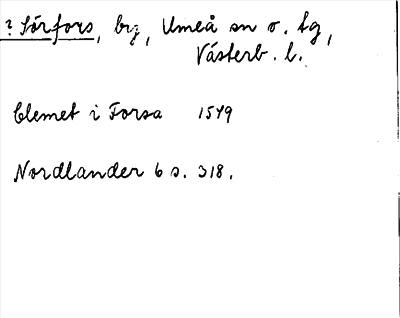 ? Sörfors, by, Umeå sn o. tg,
Västerb. l.
Clemet i Forsa 1549
Nordlander 6 s. 318.